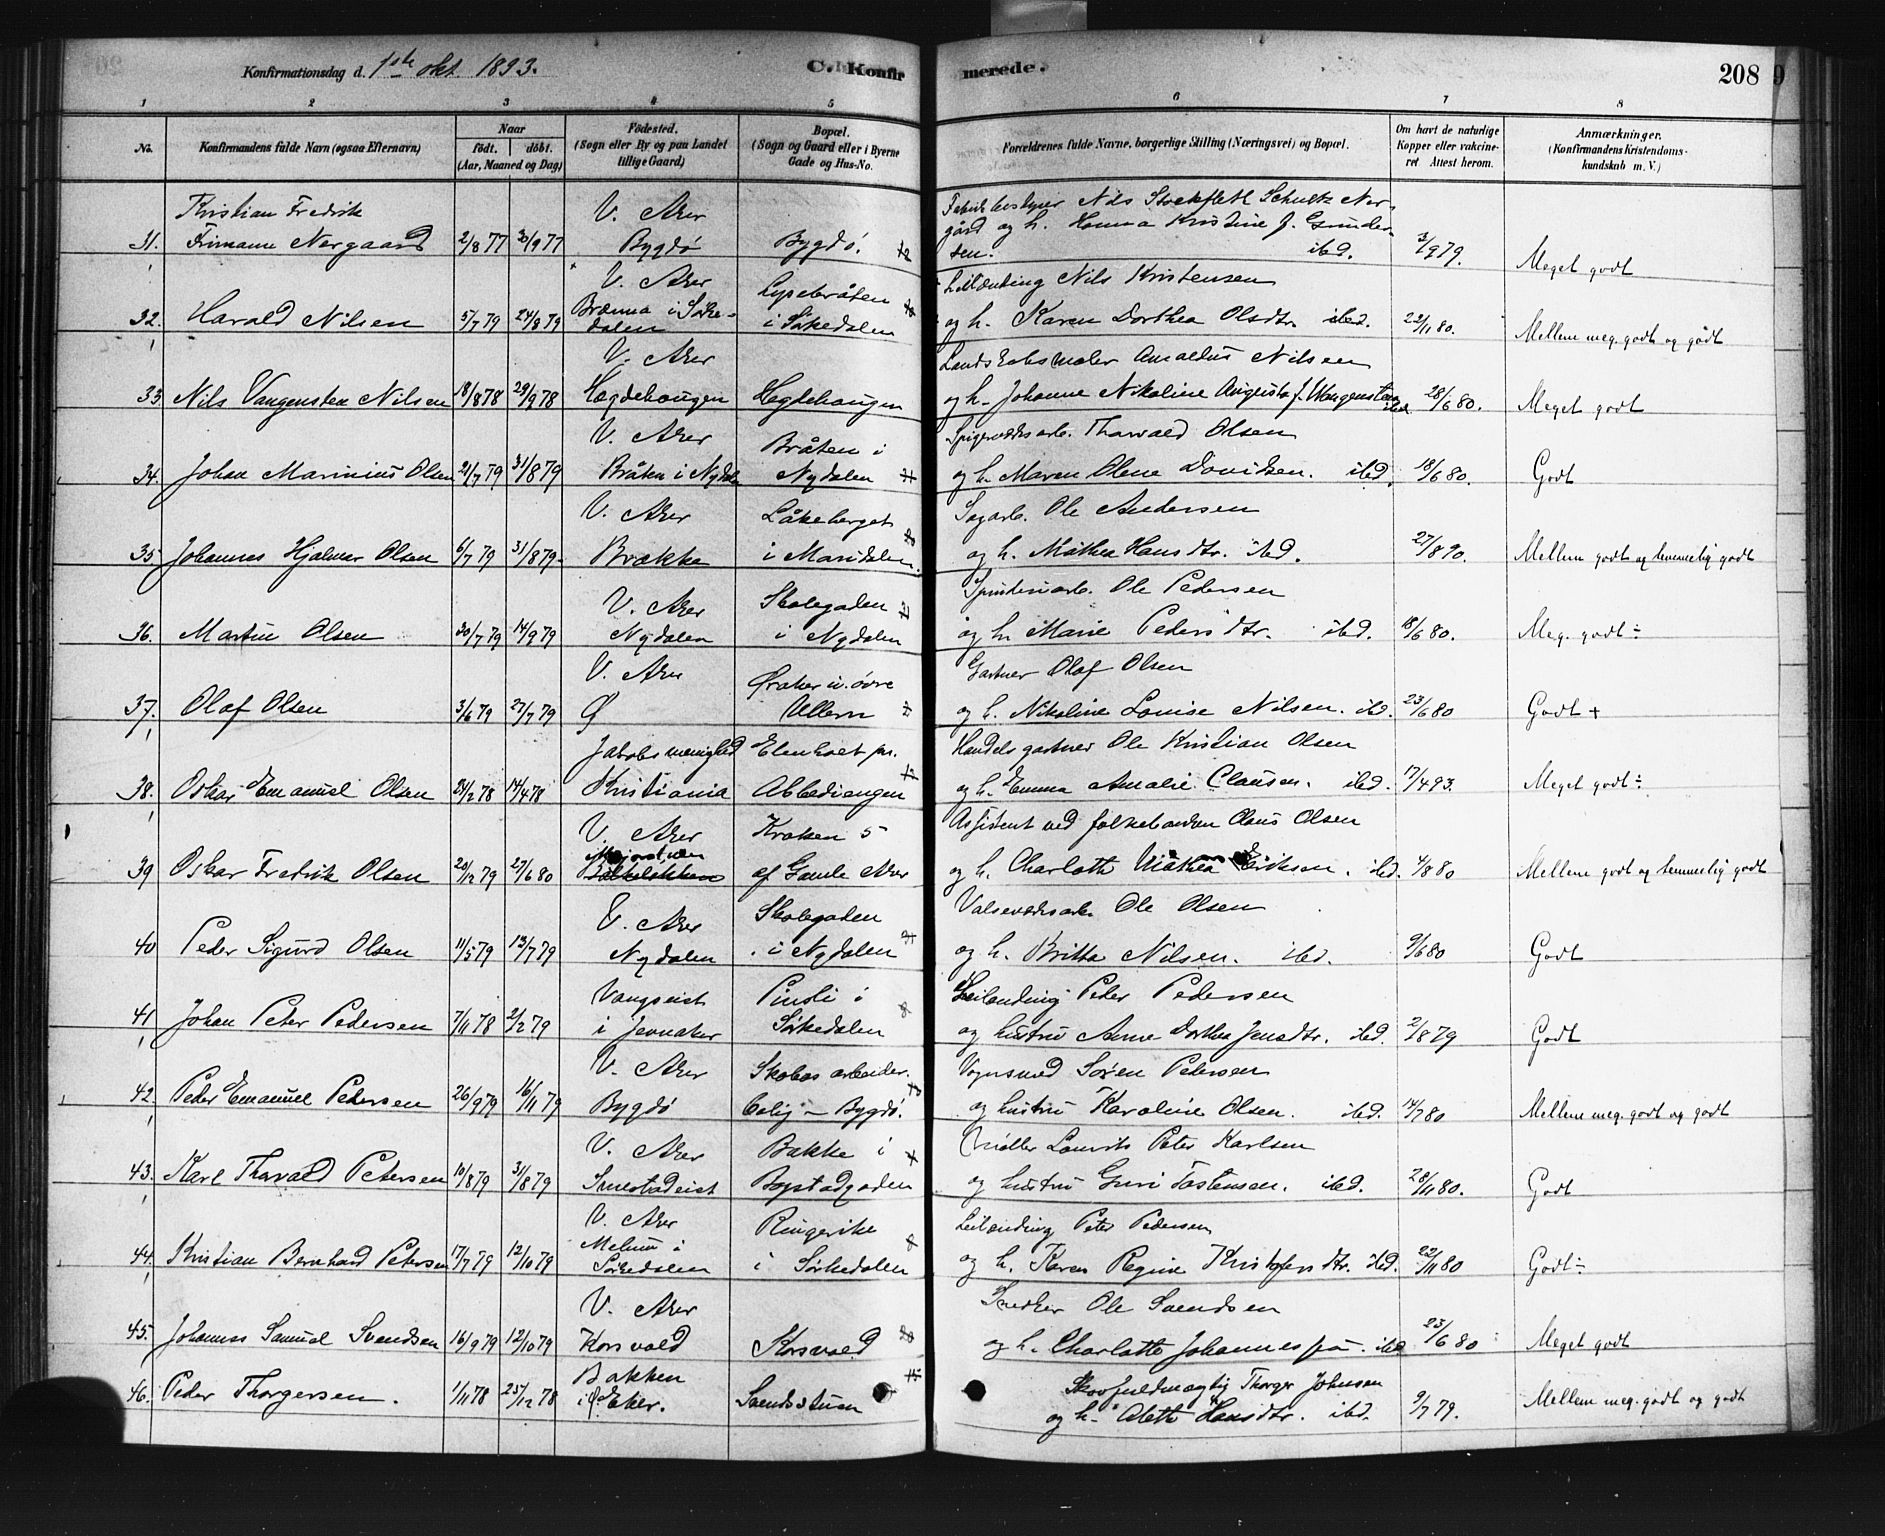 Konfirmationsdag d. 1ste okt 1893. C. Konfirmerede. 208
1 2 3 4 5 6 7 8
No. Konfirmandens fulde Navn (ogsaa Efternavn) Naar født. døbt. (Aar, Maaned og Dag) Fødested. (Sogn eller By og paa Landet tillige Gaard) Bopæl. (Sogn og Gaard eller i Byerne Gade og Hus-No. Forældrenes fulde Navne, borgerlige Stilling (Næringsvei) og Bopæl. Om havt de naturlige Kopper eller vakcineret Attest herom. Anmærkninger. (Konfirmandens Kristendomskundskab m. V.)
Kristian Fredrik V. Aker Nils Stockfleth Schultz Nør-
31. Frimann Nørgaard 2/8 77 30/9 77 Bygdö Bygdö. gård og h. Hanna Kristine f. Gunder-
sen. ibd. 3/9 79. Meget godt
V. Aker Lysebråten Leilænding Nils Kristensen
32. Harald Nilsen 5/7 79 24/8 79 Brenna i Sørkedalen i Sørkedalen og h. Karen Dorthea Olsdtr. ibd. 22/11 80. Mellem meg. godt og godt
V. Aker Landskabsmaler Amaldus Nilsen
33. Nils Vangensten Nilsen 18/8 78 29/9 78 Hægdehaugen Hegdehaugen og h. Johanne Nikoline Augusta f. Wangensten ibd. 28/6 80. Meget godt
V. Aker Bråten i Spigerverksarb. Thorvald Olsen
34. Johan Marinius Olsen 21/7 79 31/8 79 Bråten i Nydalen Nydalen og h. Maren Oline Davidsen. ibd. 18/6 80. Godt
V. Aker Låkeberget Sagarb. Ole Andersen
35. Johannes Hjalmar Olsen 6/7 79 31/8 79 Brække i Maridalen. og h. Mathea Hansdtr. ibd. 27/8 90. Mellem godt og temmelig godt
V. Aker Skolegaden Spinderiarb. Ole Pedersen
36. Martin Olsen 30/7 79 14/9 79 Nydalen i Nydalen og h. Marie Pedersdtr. ibd. 18/6 80. Meg. godt ÷
V. Aker Øraker u. övre Gartner Olaf Olsen
37. Olaf Olsen 3/6 79 27/7 79 Ø Ullern og h. Nikoline Louise Nilsen. ibd. 23/6 80 Godt +
Jakobs menighed Elenholt pr. Handelsgartner Ole Kristian Olsen
38. Oskar Emanuel Olsen 24/2 78 14/4 78 Kristiania Abbediengen og h. Emma Amalie Clausen. ibd. 17/4 93. Meget godt ÷
V. Aker Kroken 5 Assistent ved folkebanken Claus Olsen
39 Oskar Fredrik Olsen 20/12 79 27/6 80 Majorstuen af Gamle Aker og h. Charlotte Mathea Eriksen. ibd. 4/8 80 Mellem godt og temmelig godt
V. Aker Skolegaden Valseverksarb. Ole Olsen
40 Peder Sigurd Olsen 11/5 79 13/7 79 Nydalen i Nydalen og h. Britta Nilsen. ibd. 9/6 80 Godt
Vangseiet Pinsli i Leilænding Peder Pedersen
41 Johan Peter Pedersen 7/11 78 2/2 79 i Jevnaker Sørkedalen og hustru Anne Dorthea Jensdtr. ibd. 2/8 79 Godt
V. Aker Skobos arbeider- Vognmand Sören Petersen
42. Peder Emanuel Pedersen 26/9 79 16/11 79 Bygdö bolig - Bygdö. og hustru Karoline Olsen. ibd. 14/7 80 Mellem meg. godt og godt
V. Aker Bakke i Møller Laurits Peter Karlsen
43. Karl Thorvald Petersen 10/8 79 31/8 79 Smestadeiet Bogstadgaden og hustru Guri Tostensen. ibd. 28/11 80. Godt
V. Aker Ringerike Leilænding Peter Pedersen
44. Kristian Bernhard Petersen 17/7 79 12/10 79 Melum i Sørkedalen i Sørkedalen og h. Karen Regine Kristofersdtr. ibd. 22/11 80 Godt ÷
V. Aker Snedker Ole Svendsen
45. Johannes Samuel Svendsen 16/9 79 12/10 79 Korsvold Korsvold og h. Charlotte Johannespå. ibd 23/6 80 Meget godt
Bakken Skovfuldmægtig Thorger Johnsen
46. Peder Thorgersen. 1/11 78 25/12 78 i Ø Eker. Svendsstuen og h. Aleth Hansdtr. ibd. 9/7 79. Mellem meg. godt og godt